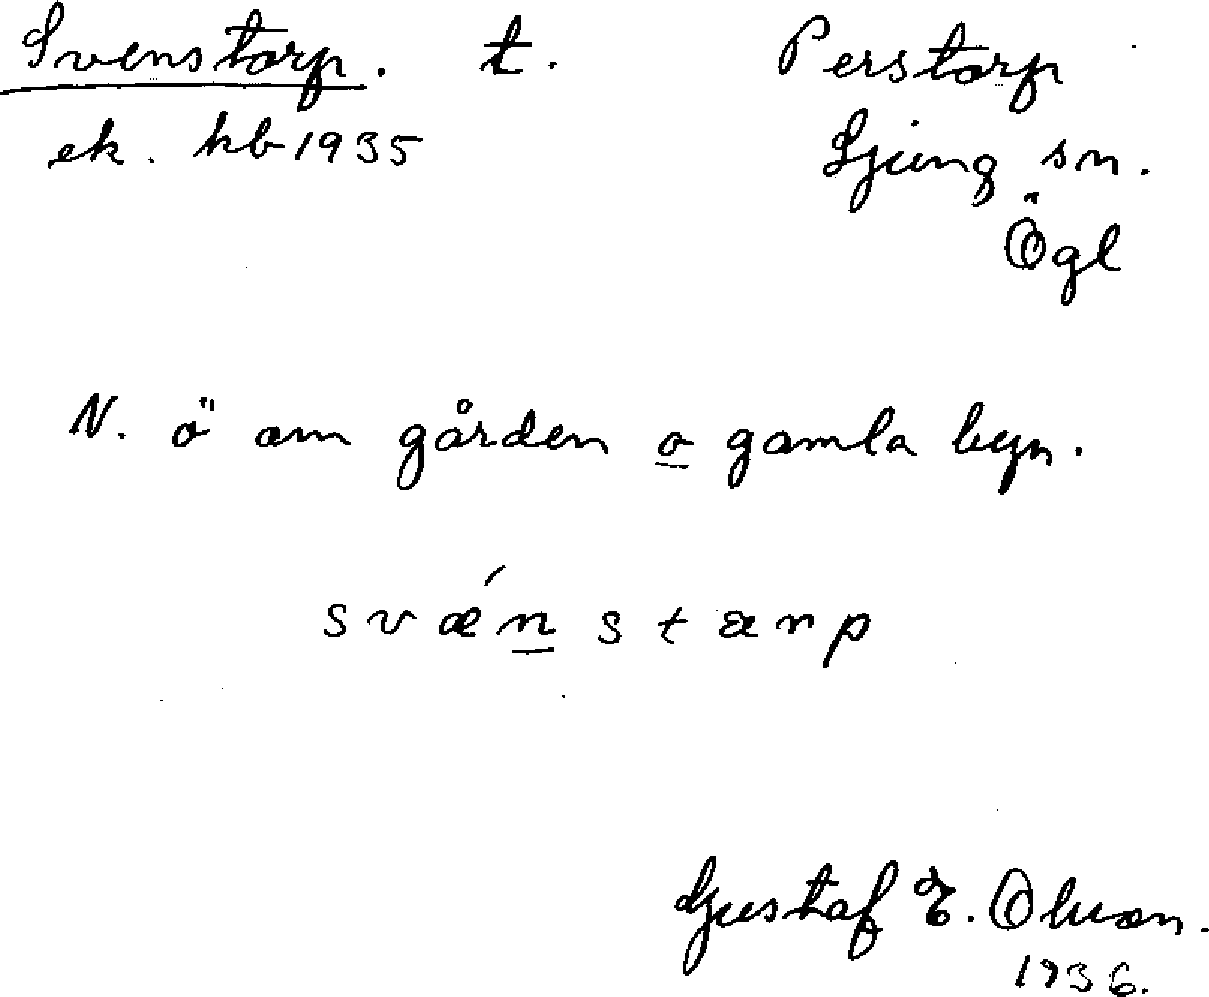 Svenstorp. t. Perstorp
ek. kb 1935 Ljung sn.
Ögl
N. ö om gården o gamla byn.
svǽnstarp
Gustaf E. Olsson.
1936.